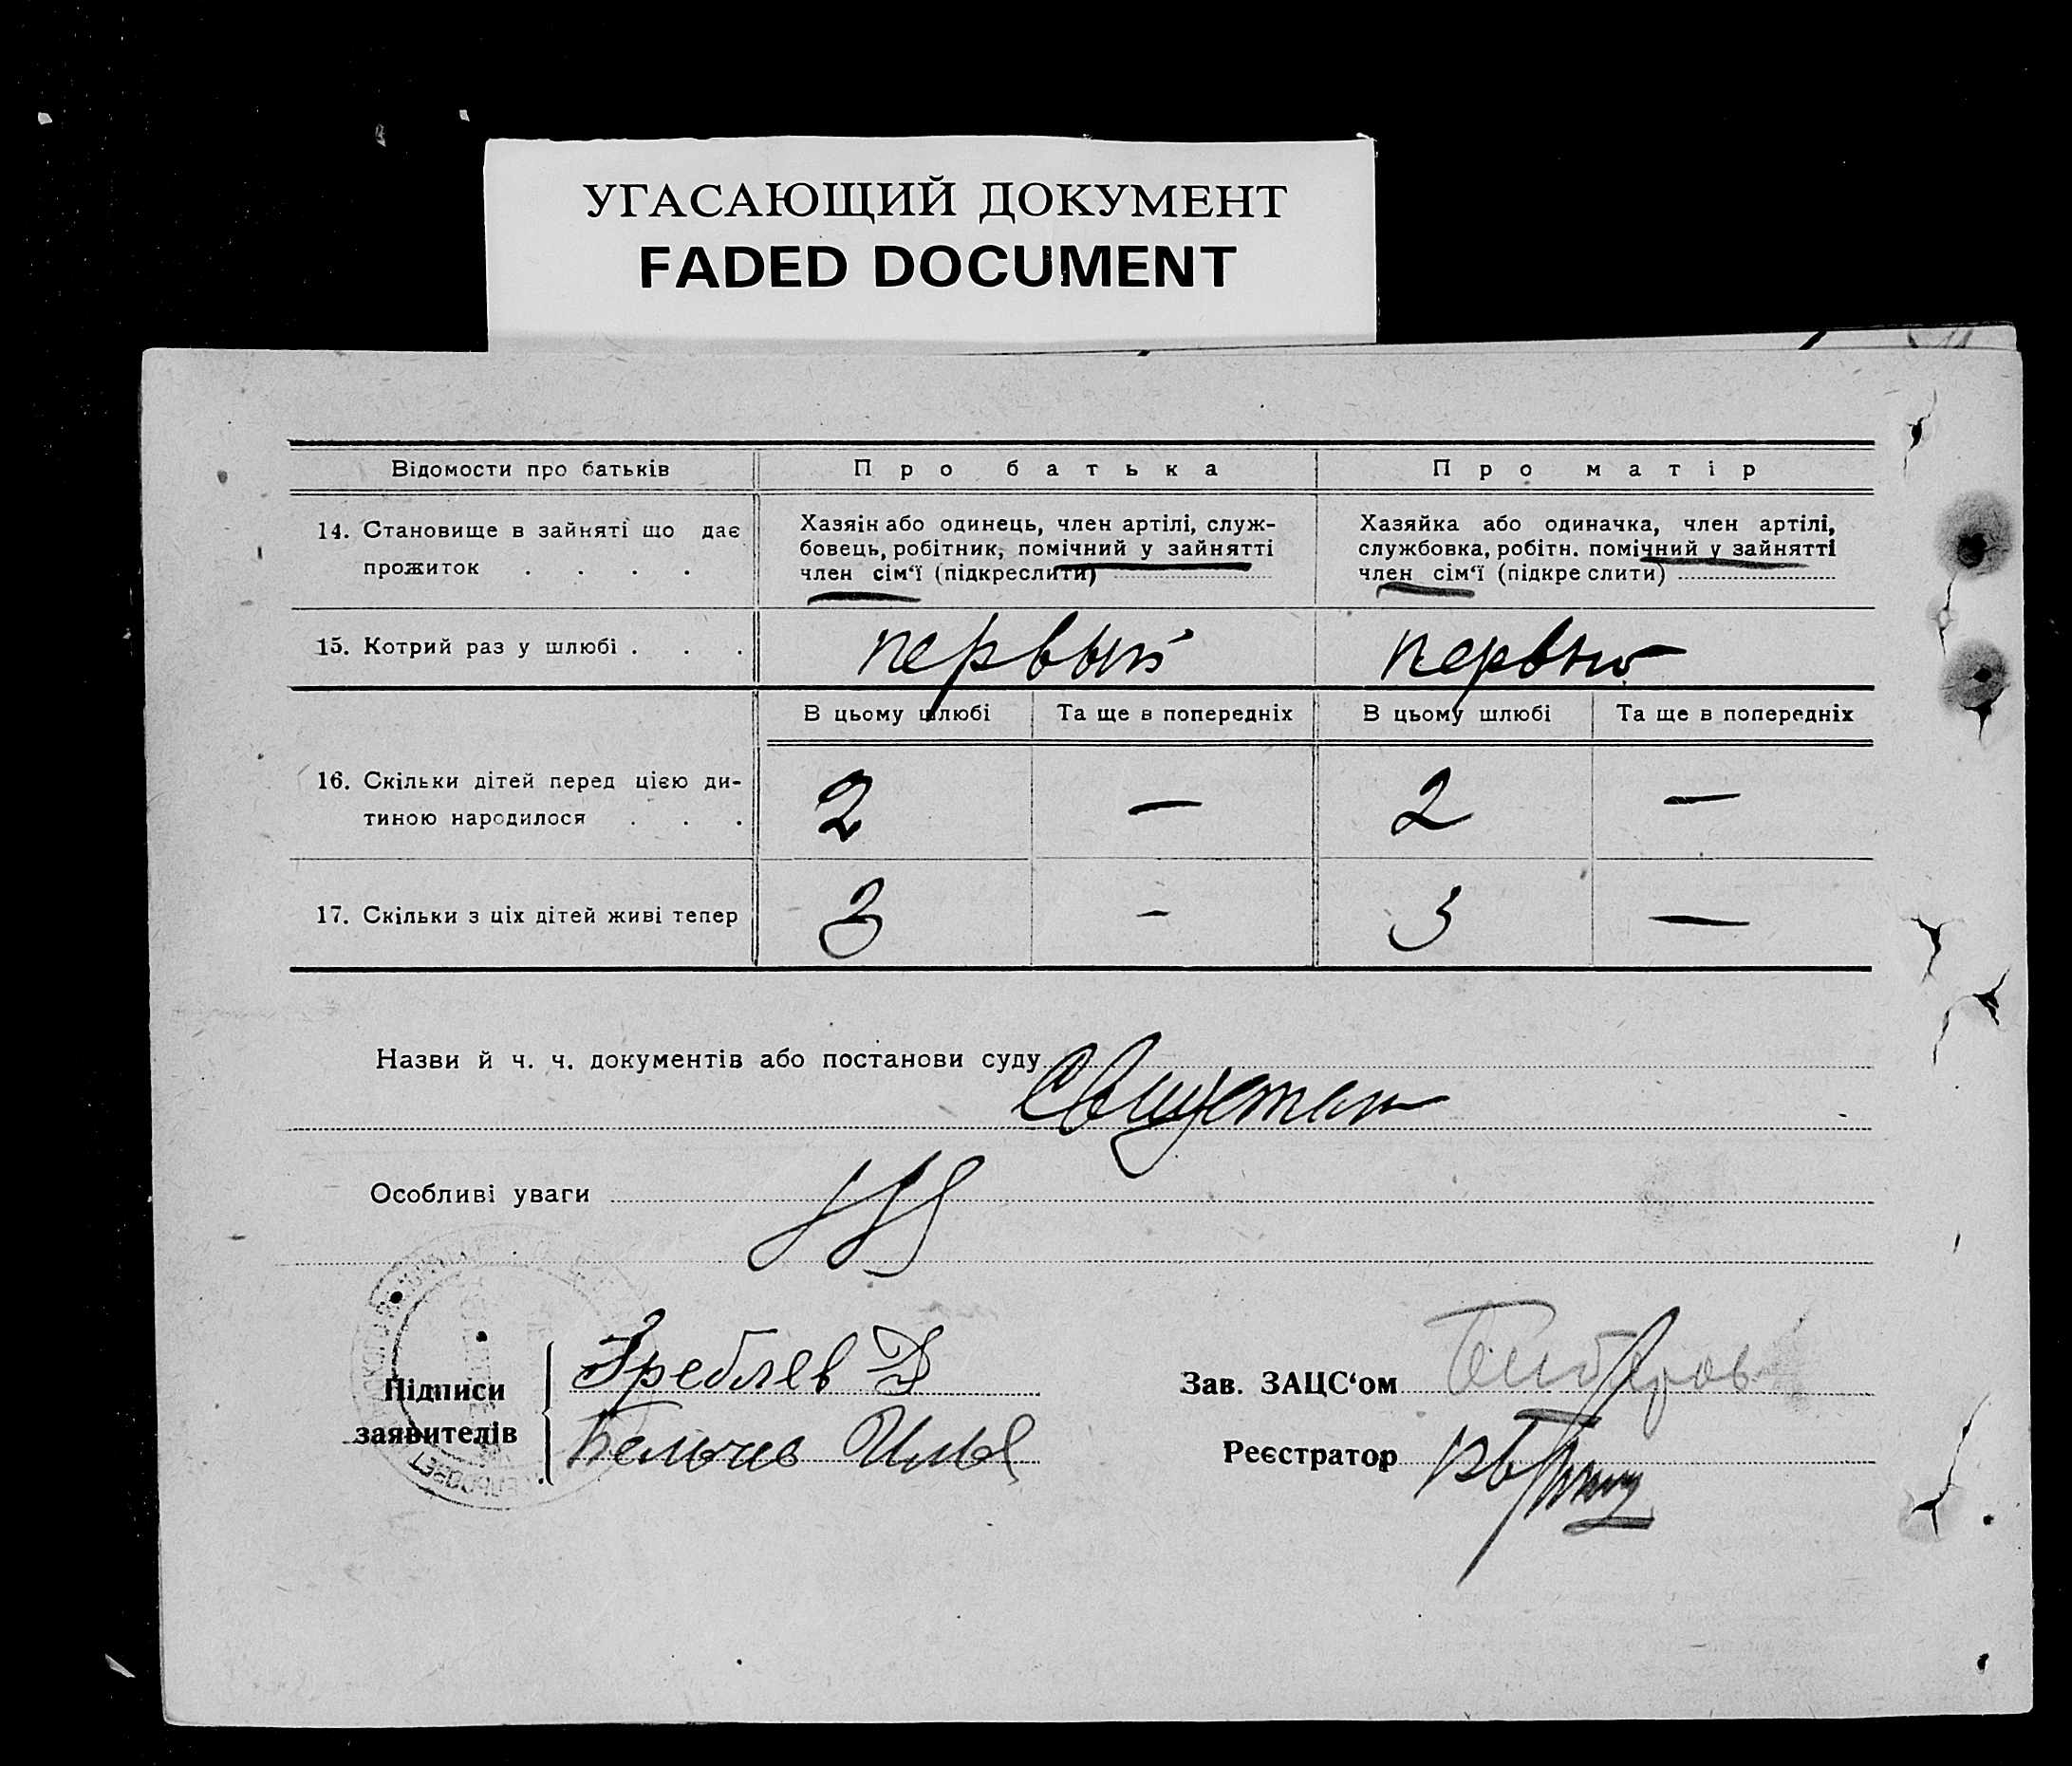 УГАСАЮЩИЙ ДОКУМЕНТ
FADED DOCUMENT
Відомости про батьків
Про батька
Про матір
14. Становище в зайняті що дає
прожиток . . . .
Хазяін або одинець, член артілі, служ-
бовець, робітник, помічний у зайнятті
член сім‘ї (підкреслити)
Хазяйка або одиначка, член артілі,
службовка, робітн. помічний у зайнятті
член сім‘ї (підкре слити)
15. Котрий раз у шлюбі . . .
первый
первый
В цьому шлюбі
Та ще в попередніх
В цьому шлюбі
Та ще в попередніх
16. Скільки дітей перед цією ди-
тиною народилося . . .
2
—
2
—
17. Скільки з ціх дітей живі тепер
3
-
3
—
Назви й ч. ч. документів або постанови суду
Особливі уваги
Підписи
заявителів
Д
Зав. ЗАЦС‘ом
Реєстратор